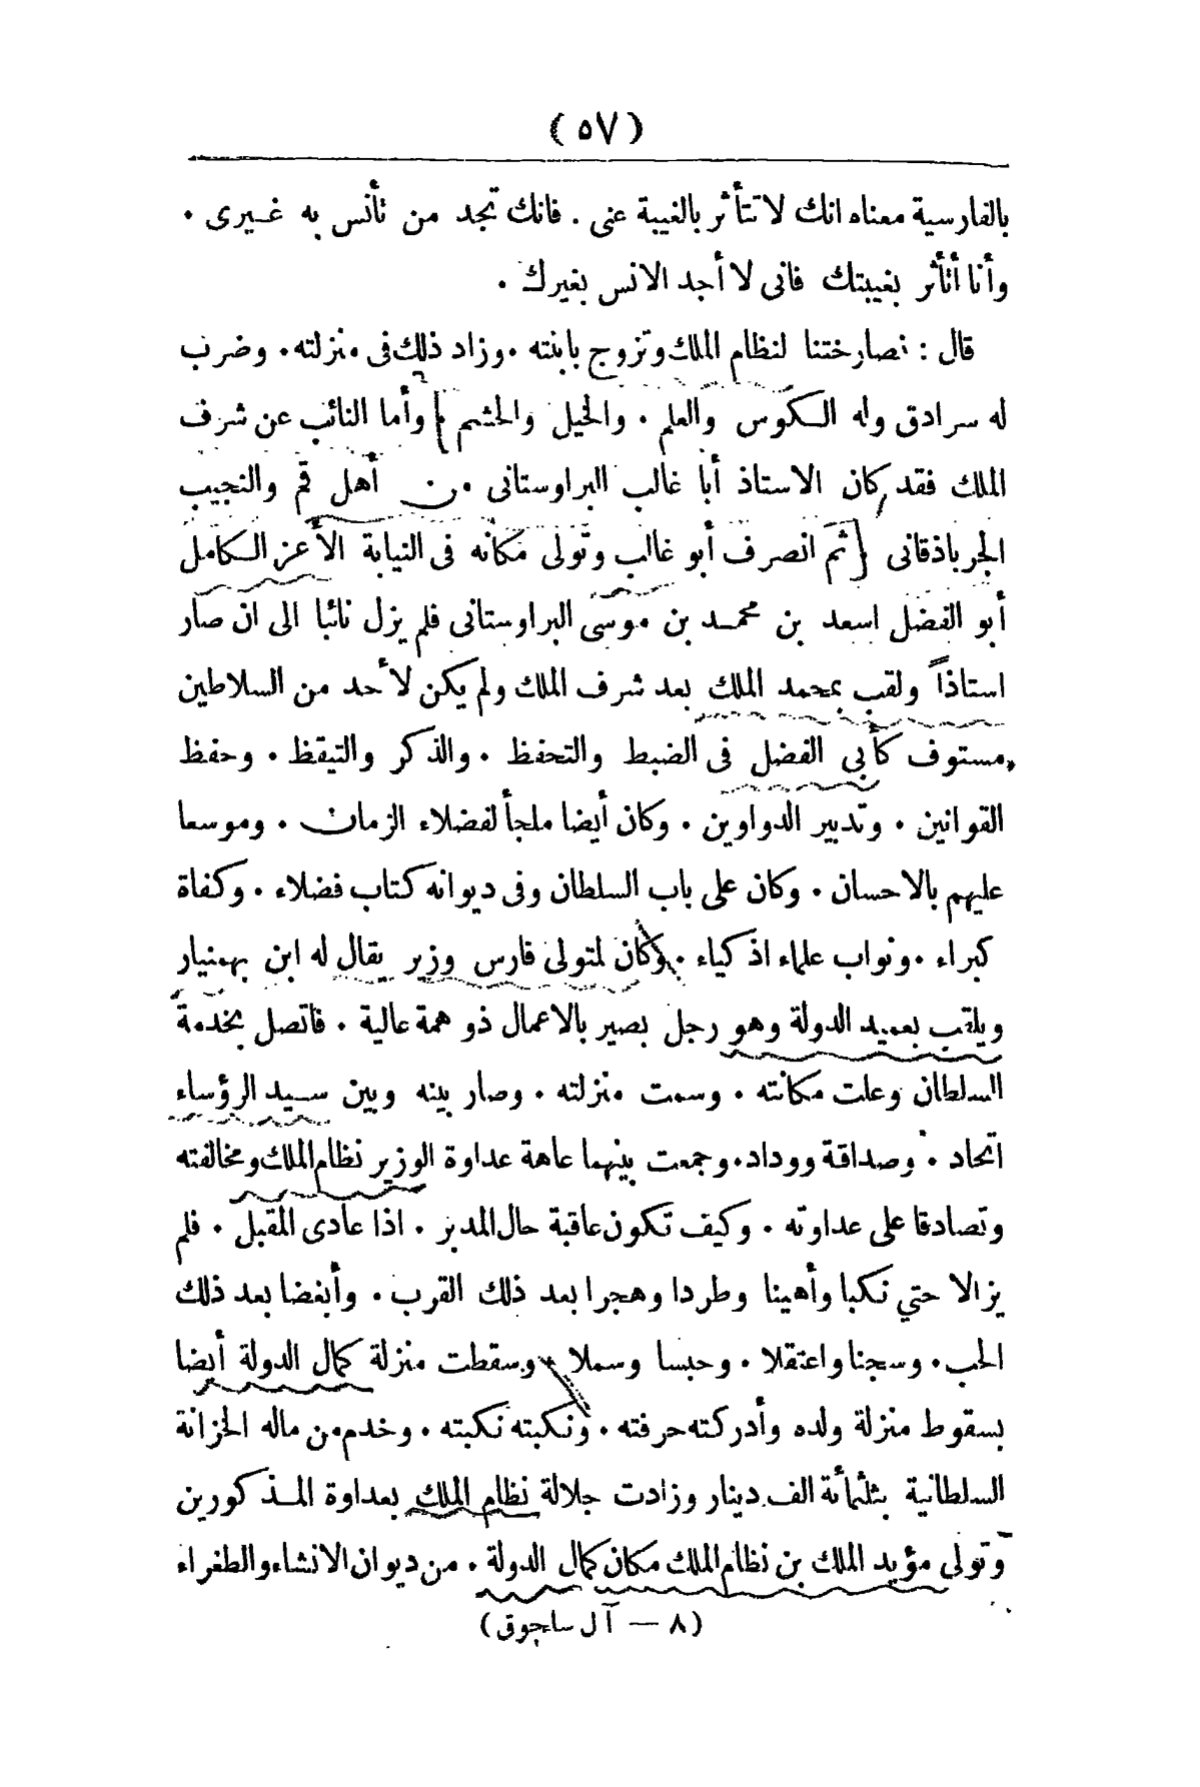 (٥٧)
بالفارسية معناه انك لا تتأثر بالغيبة عنى . فانك تجد من تأنس به غيرى .
وأنا أتأثر بغيبتك فانى لا أجد الانس بغيرك .
قال : فصار ختنا لنظام الملك وتزوج بابنته . وزاد ذلك فى منزلته . وضرب
له سرادق وله الكوس والعلم . والخيل والحشم } وأما النائب عن شرف
الملك فقد كان الاستاذ أبا غالب البراوستانى من أهل قم والنجيب
الجرباذقانى { ثم انصرف أبو غالب وتولى مكانه فى النيابة الأعز الكامل
أبو الفضل اسعد بن محمد بن موسى البراوستانى فلم يزل نائبا الى ان صار
استاذاً ولقب بمجمد الملك بعد شرف الملك ولم يكن لأحد من السلاطين
مستوف كأبى الفضل فى الضبط والتحفظ . والذكر والتيقظ . وحفظ
القوانين . وتدبير الدواوين . وكان أيضا ملجأ لفضلاء الزمان . وموسعا
عليهم بالاحسان . وكان على باب السلطان وفى ديوانه كتاب فضلاء . وكفاة
كبراء . ونواب علماء اذكياء . وكان لمتولى فارس وزير يقال له ابن بهمنيار
ويلقب بعميد الدولة وهو رجل بصير بالاعمال ذو همة عالية . فاتصل بخدمة
السلطان وعلت مكانته . وسمت منزلته . وصار بينه وبين سيد الرؤساء
اتحاد . وصداقة ووداد . وجمعت بينهما عاهة عداوة الوزير نظام الملك ومخالفته
وتصادقا على عداوته . وكيف تكون عاقبة حال المدبر . اذا عادى المقبل . فلم
يزالا حتي نكبا وأهينا وطردا وهجرا بعد ذلك القرب . وأبغضا بعد ذلك
الحب . وسجنا واعتقلا . وحبسا وسملا . وسقطت منزلة كمال الدولة أيضا
بسقوط منزلة ولده وأدركته حرفته . ونكبته نكبته . وخدم من ماله الخزانة
السلطانية بثلثمائة الف دينار وزادت جلالة نظام الملك بعداوة المذكورين
وتولى مؤيد الملك بن نظام الملك مكان كمال الدولة . من ديوان الانشاء والطغراء
(٨ — آل سلجوق)